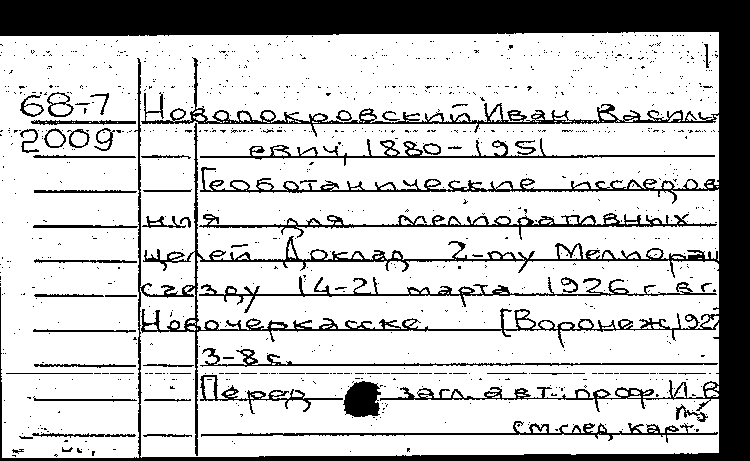 68-7 Новопокровский, Иван Василь-
2009 евич, 1880-1951
Геоботанические исследов
ния для мелиоративных
целей Доклад 2-му Мелиорац
съезду 14-21 марта 1926 г. в г.
Новочеркасске. [Воронеж, 1927
3-8 с.
Перед загл. авт.: проф. И. В
см. след. карт.